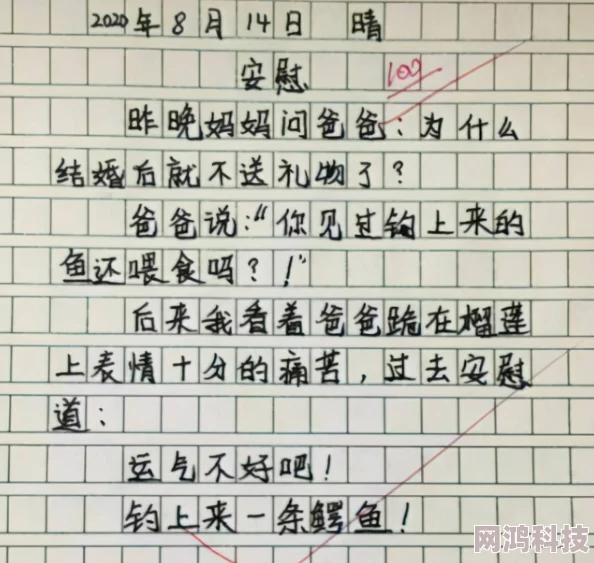 2020年8月14日 晴
安慰 100
昨晚妈妈问爸爸:为什么
结婚后就不送礼物了?
爸爸说:“你见过钩上来的
鱼还喂食吗?!”
后来我看着爸爸跪在榴莲
上表情十分的痛苦,过去安慰
道:
运气不好吧!
钓上来一条鳄鱼!
网鸿科技